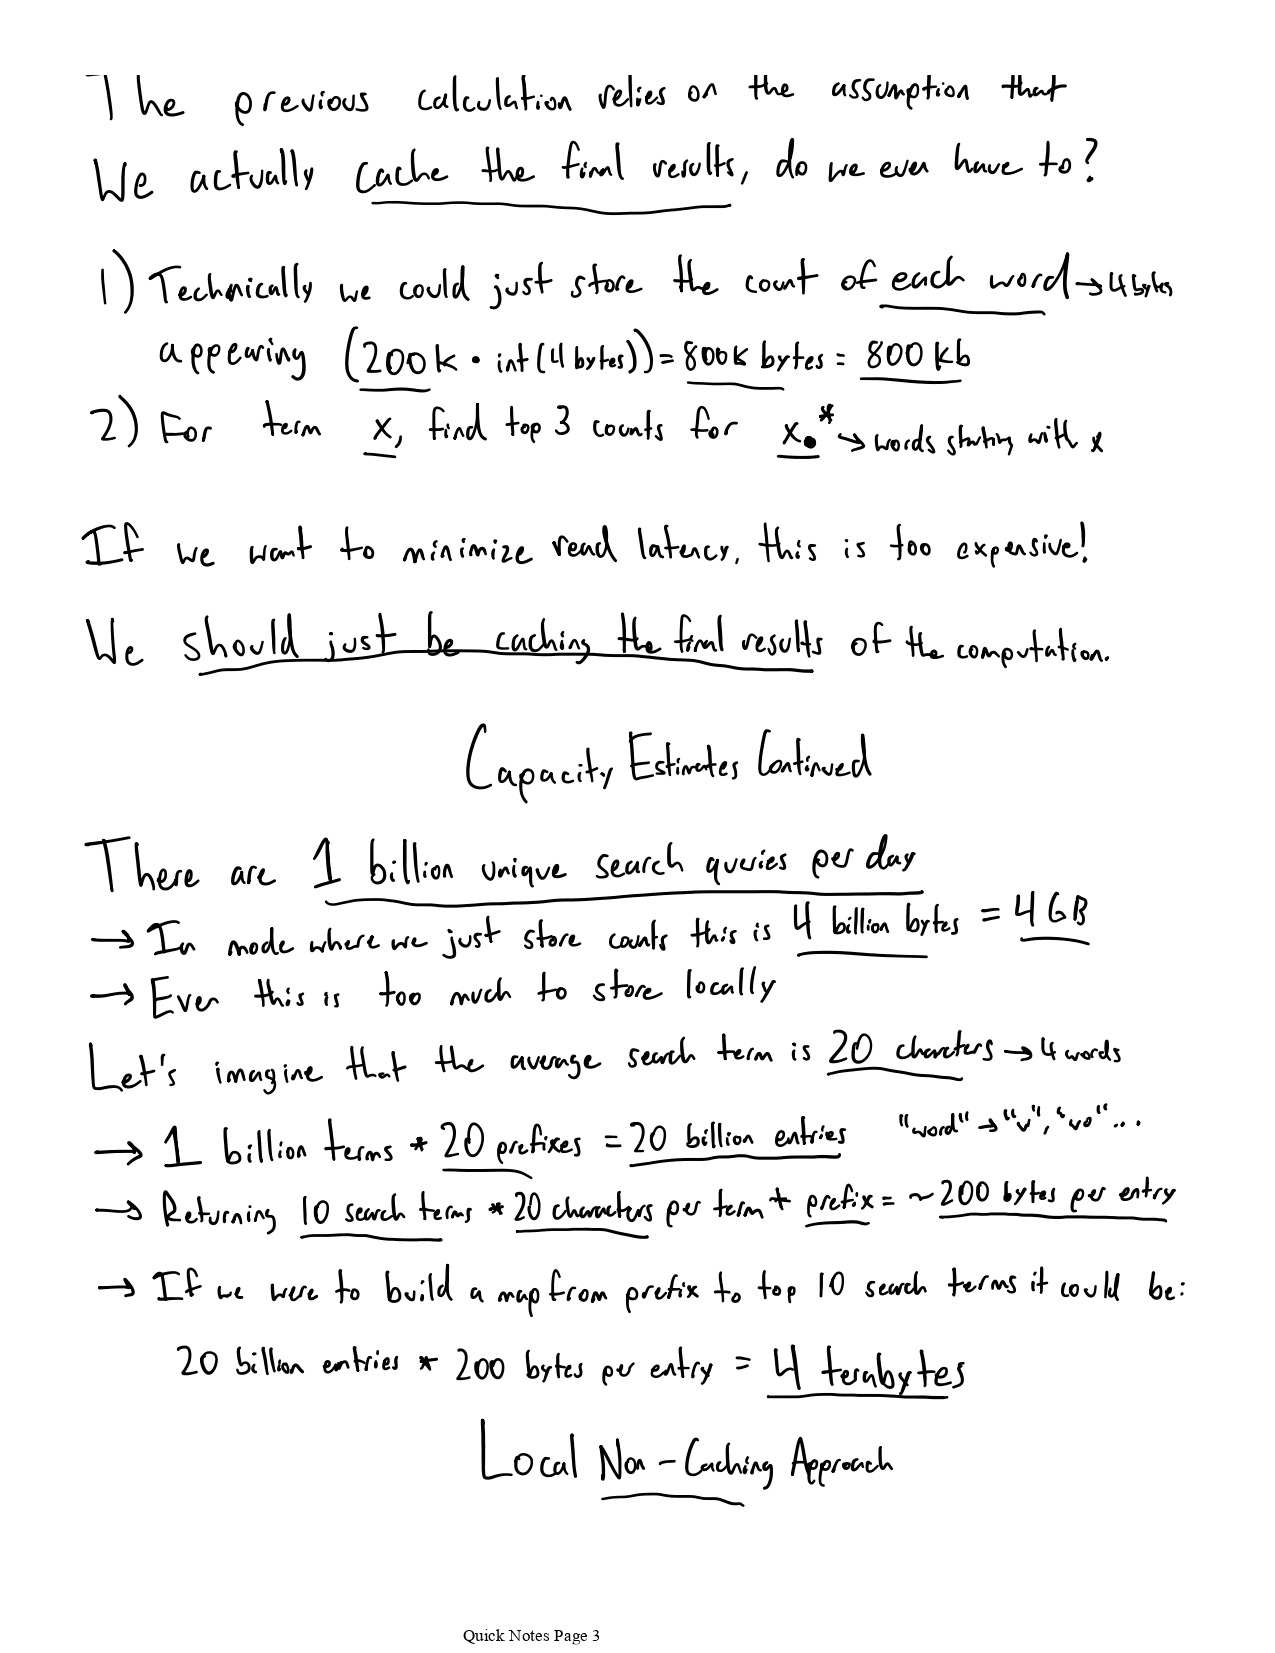 The previous calculation relies on the assumption that
We actually cache the final results, do we even have to?
1) Technically we could just store the count of each word → 4 bytes
appearing (200k • int (4 bytes)) = 800k bytes = 800 kb
2) For term x, find top 3 counts for x.* → words starting with x
If we want to minimize read latency, this is too expensive!
We should just be caching the final results of the computation.
Capacity Estimates Continued
There are 1 billion unique search queries per day
→ In mode where we just store counts this is 4 billion bytes = 4 GB
→ Even this is too much to store locally
Let's imagine that the average search term is 20 characters → 4 words
→ 1 billion terms * 20 prefixes = 20 billion entries "word" → "v", "vo"...
→ Returning 10 search terms * 20 characters per term + prefix = ~200 bytes per entry
→ If we were to build a map from prefix to top 10 search terms it could be:
20 billion entries * 200 bytes per entry = 4 terabytes
Local Non-Caching Approach
Quick Notes Page 3